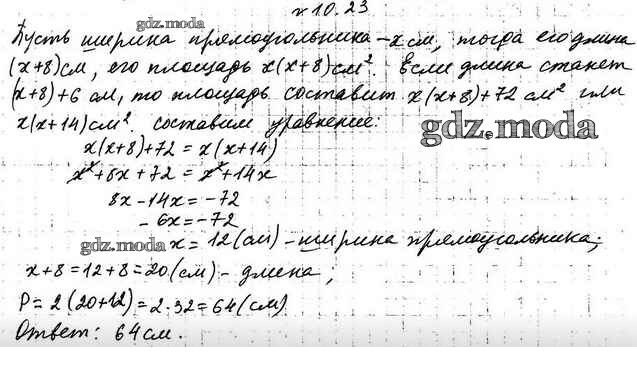 № 10.23
gdz.moda
Пусть ширина прямоугольника – x см, тогда его длина
(x+8) см, его площадь x(x+8) см². Если длина станет
(x+8)+6 см, то площадь составит x(x+8)+72 см² или
x(x+14) см². Составим уравнение:
gdz.moda
x(x+8)+72 = x(x+14)
x²+8x+72 = x²+14x
8x-14x = -72
-6x = -72
gdz.moda x = 12 (см) – ширина прямоугольника;
x+8 = 12+8 = 20 (см) – длина;
P = 2(20+12) = 2·32 = 64 (см)
Ответ: 64 см.